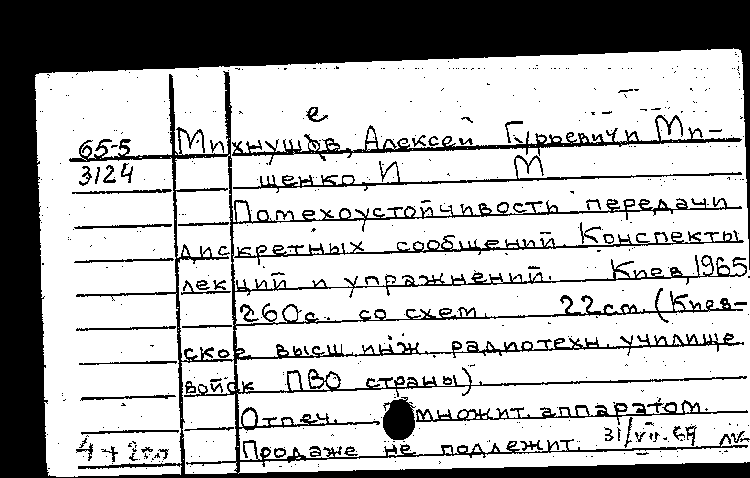 е
65-5 Михнушов, Алексей Гурьевич и Ми-
3124 щенко, И М
Помехоустойчивость передачи
дискретных сообщений. Конспекты
лекций и упражнений. Киев, 1965
260с. со схем. 22см. (Киев-
ское высш. инж. радиотехн. училище
войск ПВО страны).
Отпеч. множит. аппаратом.
Продаже не подлежит. 31/VII.69